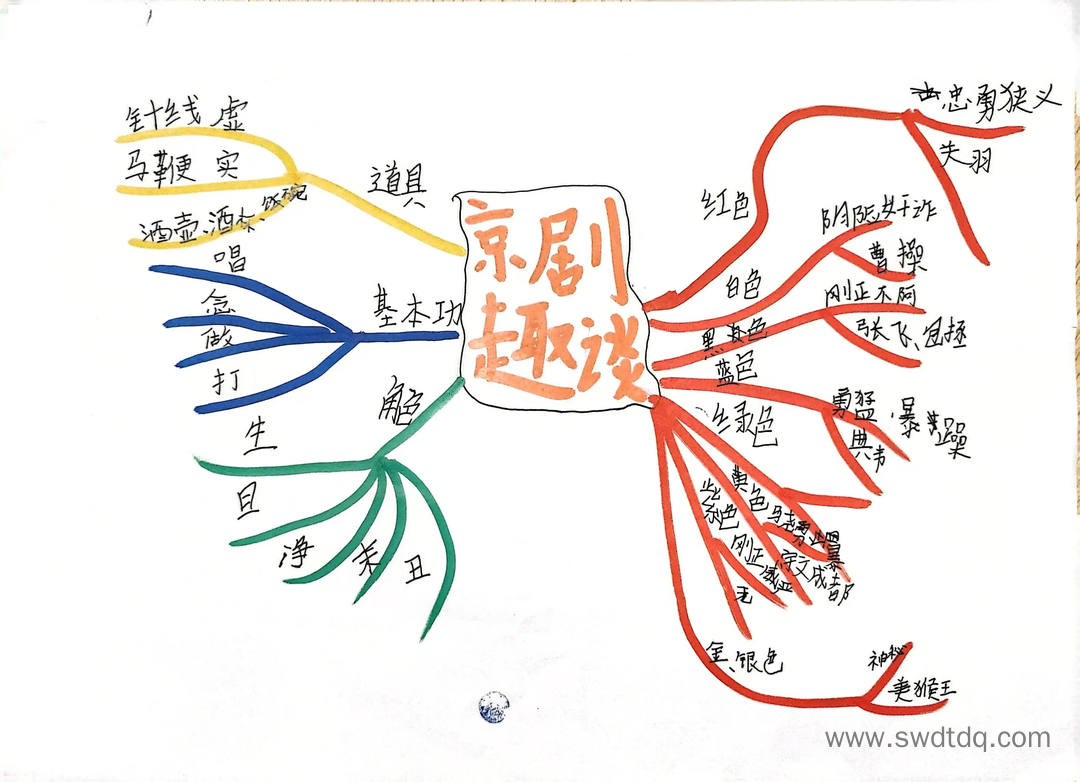 京剧
趣谈
道具
针线 虚
马鞭 实
酒壶、酒杯、饭碗
基本功
唱
念
做
打
角色
生
旦
净
末
丑
红色
忠勇狭义
关羽
白色
阴险、奸诈
曹操
黑色
刚正不阿
张飞、包拯
蓝色
勇猛、暴躁
典韦
绿色
黄色
宇文成都
紫色
刚正
金、银色
神秘
美猴王
www.swdtdq.com